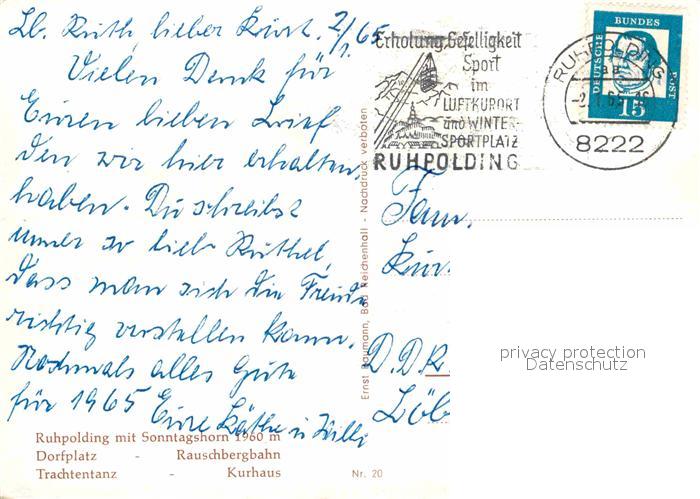 Lb. Ruth, lieber Kurt. 2/1.65
Vielen Dank für
Euren lieben Brief
den wir hier erhalten
haben. Du schreibst
immer so lieb Ruthel,
dass man sich die Freude
richtig vorstellen kann.
Nochmals alles Gute
für 1965 Eure Käthe u Willi
Ruhpolding mit Sonntagshorn 1960 m
Dorfplatz - Rauschbergbahn
Trachtentanz - Kurhaus
Nr. 20
Ernst Baumann, Bad Reichenhall - Nachdruck verboten
Erholung Geselligkeit
Sport
im
LUFTKURORT
und WINTER-
SPORTPLATZ
RUHPOLDING
RUHPOLDING
aa
-2.1.65-16
8222
DEUTSCHE
BUNDES
POST
15
Fam.
Kur
D.D.R.
Löb
privacy protection
Datenschutz